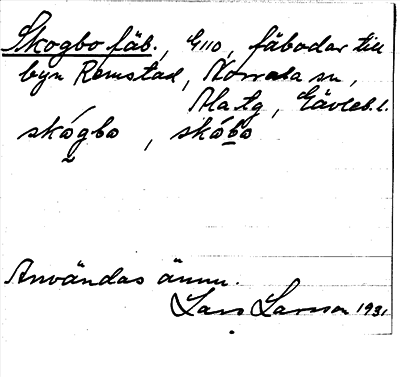 Skogbo fäb., E110, fäbodar till
byn Remstad, Norrala sn,
Ala tg, Gävleb. l.
skógbo, skóbo
Användas ännu.
Lars Larsson 1931